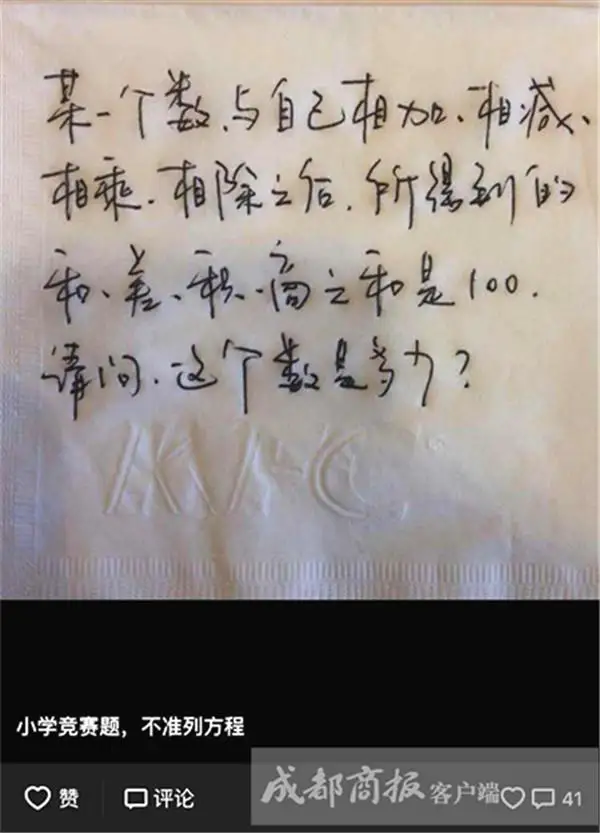 某一个数,与自己相加、相减、
相乘、相除之后,所得到的
和、差、积、商之和是100.
请问,这个数是多少?
MAC
小学竞赛题，不准列方程
赞
评论
成都商报客户端
41